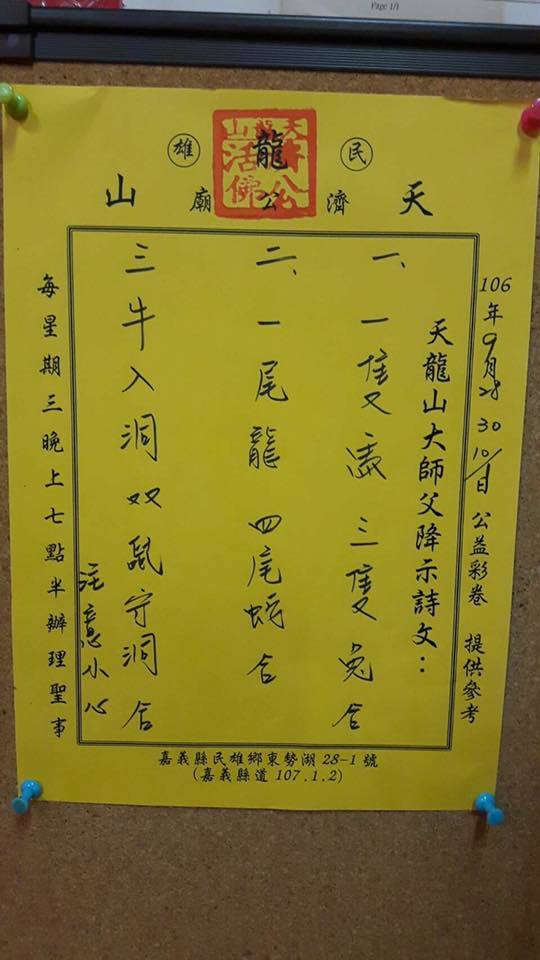 Page 1/1
民 雄
天 龍 山
濟公廟
天龍山
濟公活佛
106年9月28 30 10/1日 公益彩卷 提供參考
天龍山大師父降示詩文：
一、一隻馬三隻兔合
二、一尾龍四尾蛇合
三 牛入洞双鼠守洞合
注意小心
每星期三晚上七點半辦理聖事
嘉義縣民雄鄉東勢湖28-1號
(嘉義縣道107.1.2)